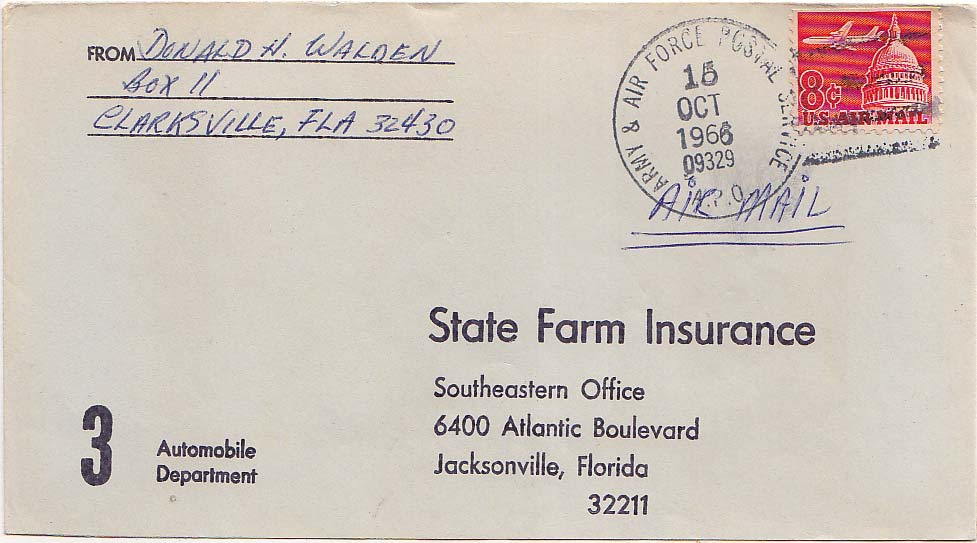 FROM DONALD H. WALDEN
BOX 11
CLARKSVILLE, FLA 32430
ARMY & AIR FORCE POSTAL SERVICE
15
OCT
1966
09329
A.P.O.
8¢
U.S. AIR MAIL
AIR MAIL
State Farm Insurance
Southeastern Office
6400 Atlantic Boulevard
Jacksonville, Florida
32211
3
Automobile
Department